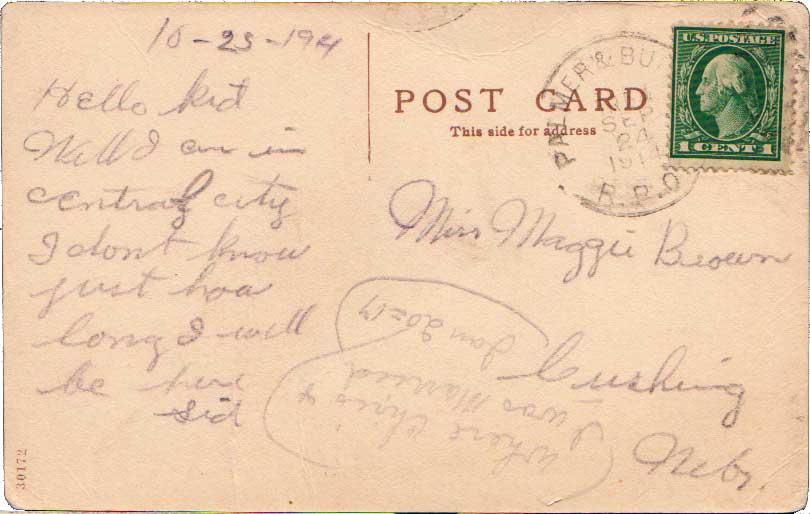 10-23-1914
Hello kid
Well I am in
central city
I dont know
just how
long I will
be here
Sid
POST CARD
This side for address
PALMER & BU
SEP
24
191
R.P.O.
U.S. POSTAGE
1 CENT 1
Miss Maggie Brown
Cushing
Nebr.
where this
I was Married
Jan 20=17
30172